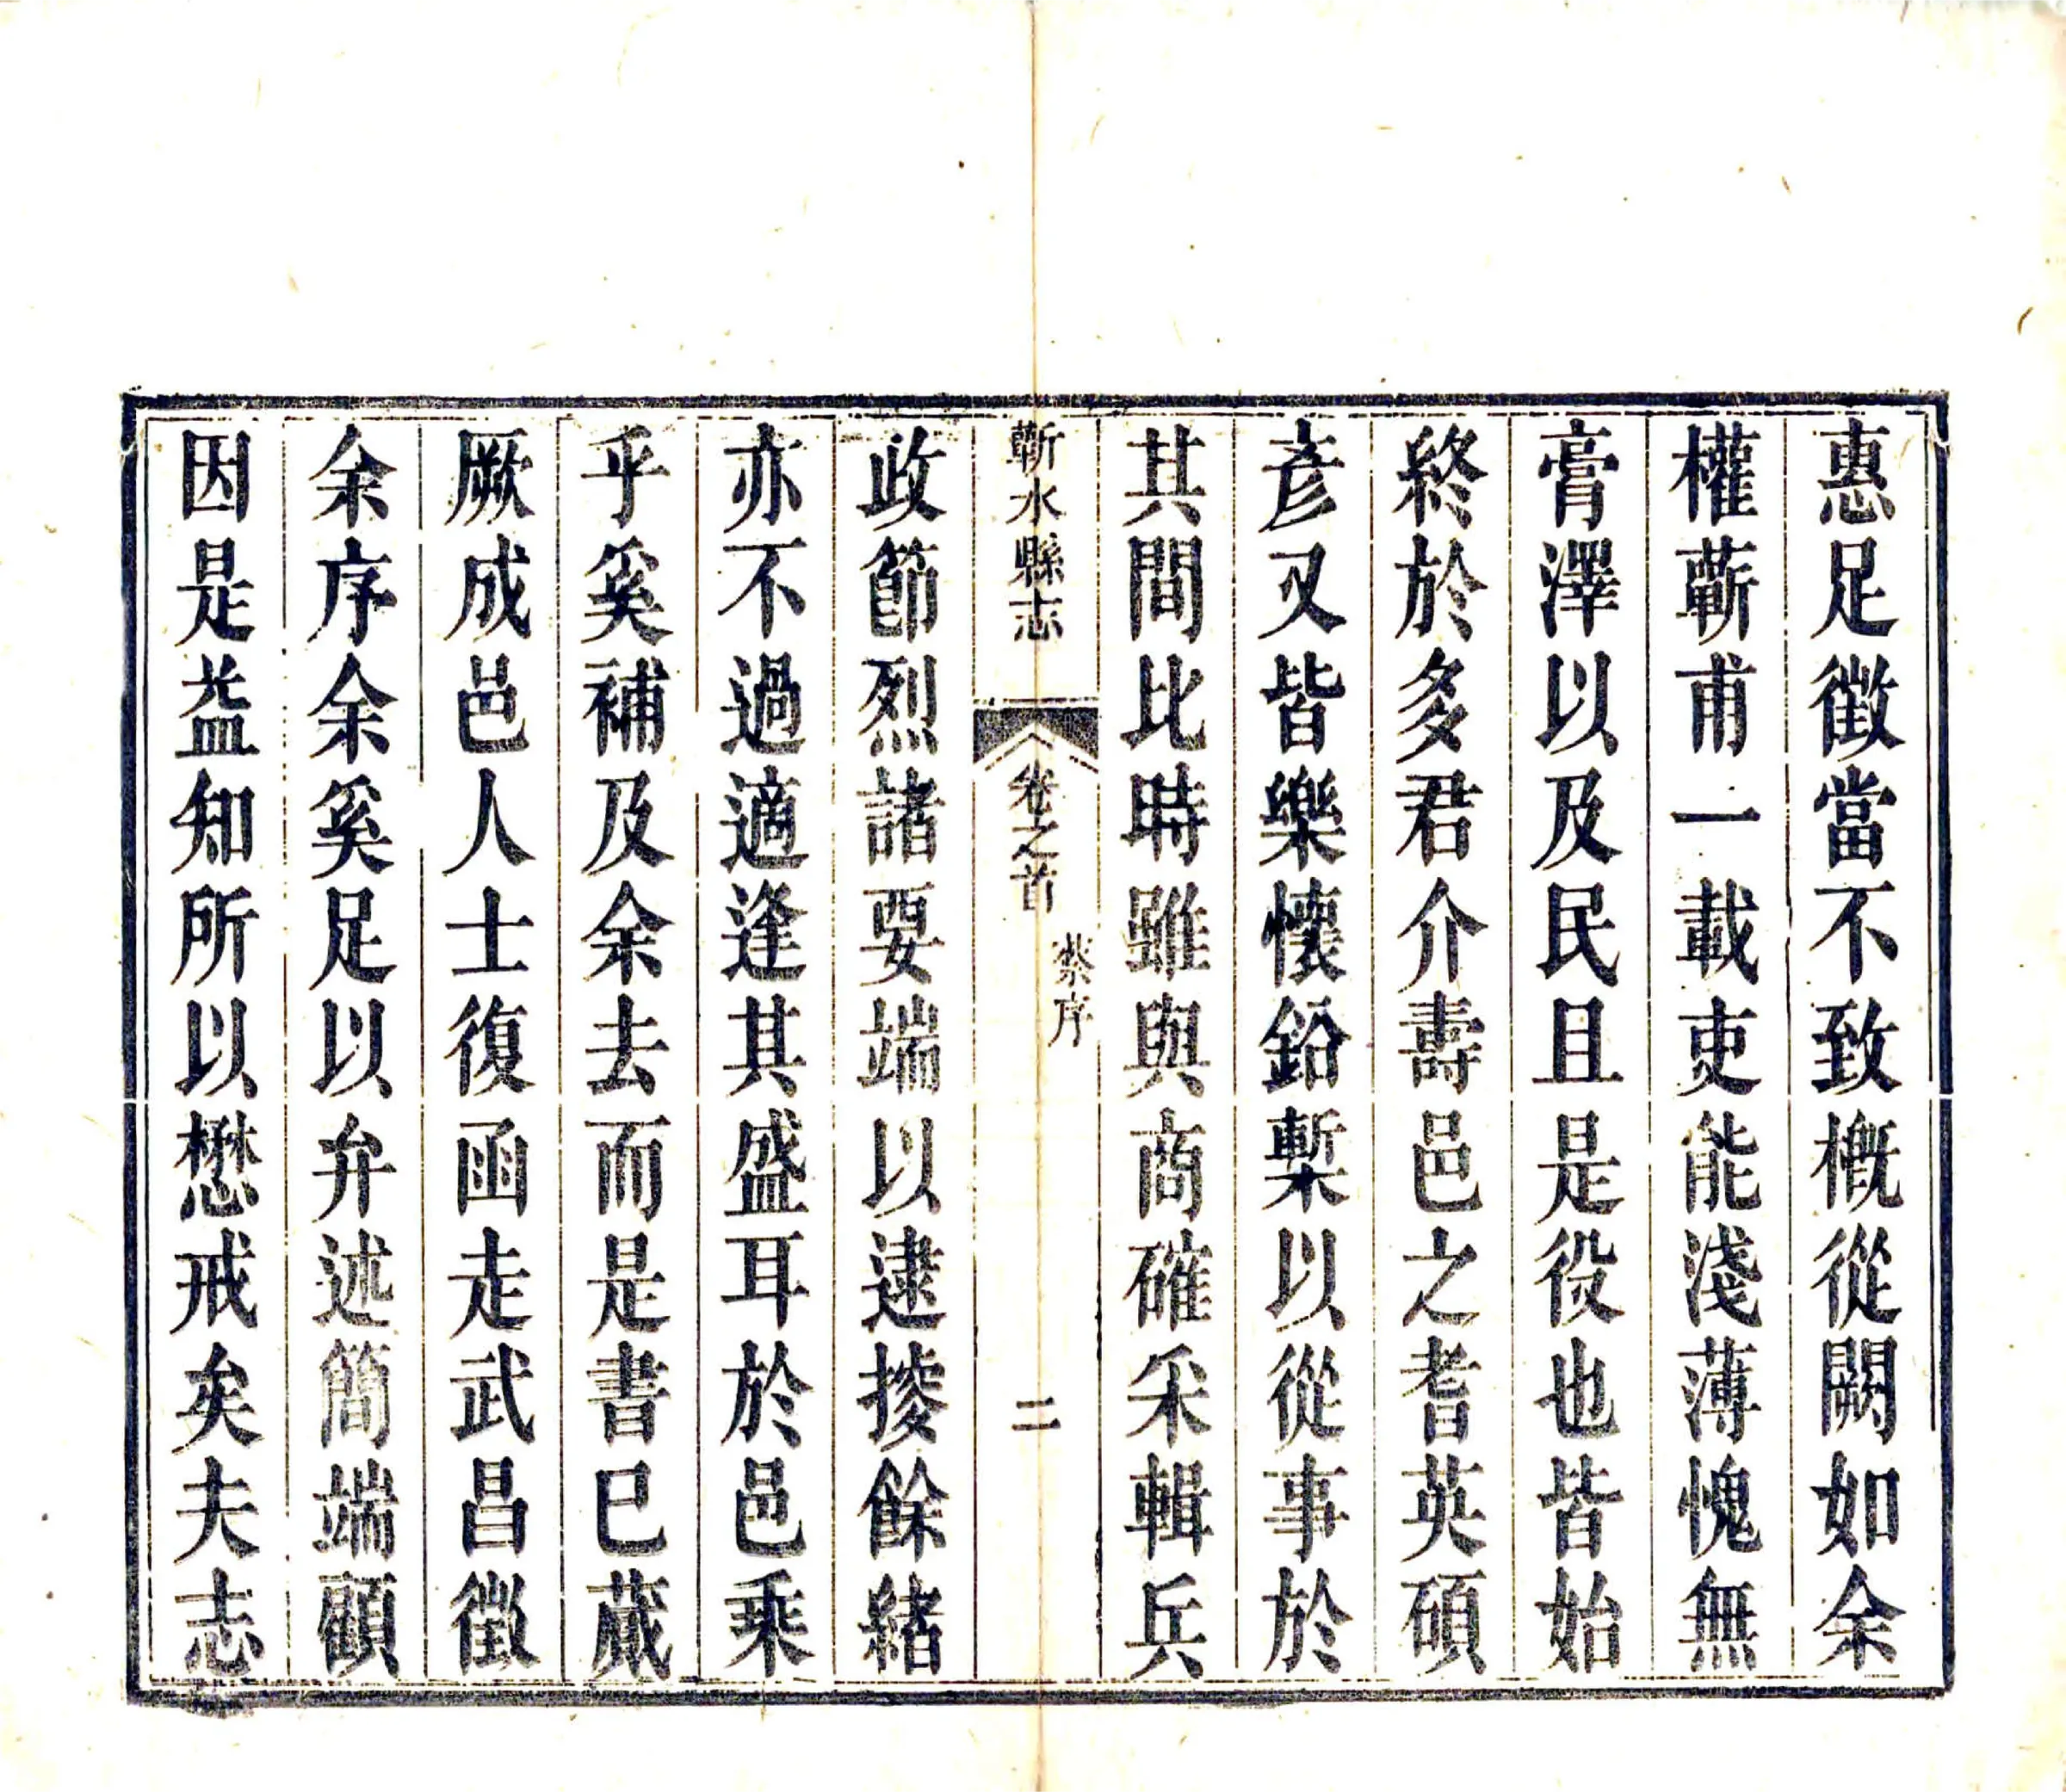 惠足徵當不致概從闕如余
權蘄甫一載吏能淺薄愧無
膏澤以及民且是役也皆始
終於多君介壽邑之耆英碩
彥又皆樂懷鉛槧以從事於
其間比時雖與商確采輯兵
蘄水縣志
卷之首
蔡序
二
政節烈諸要端以逮掕餘緒
亦不過適逢其盛耳於邑乘
乎奚補及余去而是書已蕆
厥成邑人士復函走武昌徵
余序余奚足以弁述簡端顧
因是益知所以懋戒矣夫志